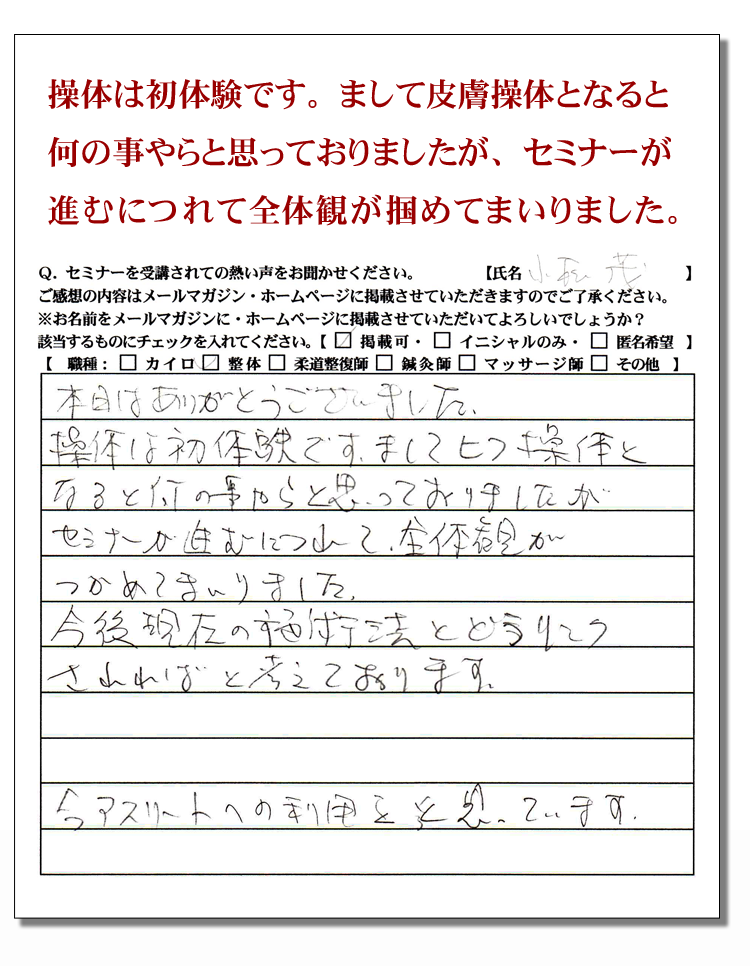 操体は初体験です。まして皮膚操体となると
何の事やらと思っておりましたが、セミナーが
進むにつれて全体観が掴めてまいりました。
Q. セミナーを受講されての熱い声をお聞かせください。 【氏名 小松 茂 】
ご感想の内容はメールマガジン・ホームページに掲載させていただきますのでご了承ください。
※お名前をメールマガジンに・ホームページに掲載させていただいてよろしいでしょうか？
該当するものにチェックを入れてください。【 ☑ 掲載可・ □ イニシャルのみ・ □ 匿名希望 】
【 職種： □ カイロ ☑ 整体 □ 柔道整復師 □ 鍼灸師 □ マッサージ師 □ その他 】
本日はありがとうございました。
操体は初体験です。ましてヒフ操体と
なると何の事やらと思っておりましたが
セミナーが進むにつれて、全体観が
つかめてまいりました。
今後現在の施術法とどうリンク
されればと考えております。
今アスリートへの利用をと思っています。